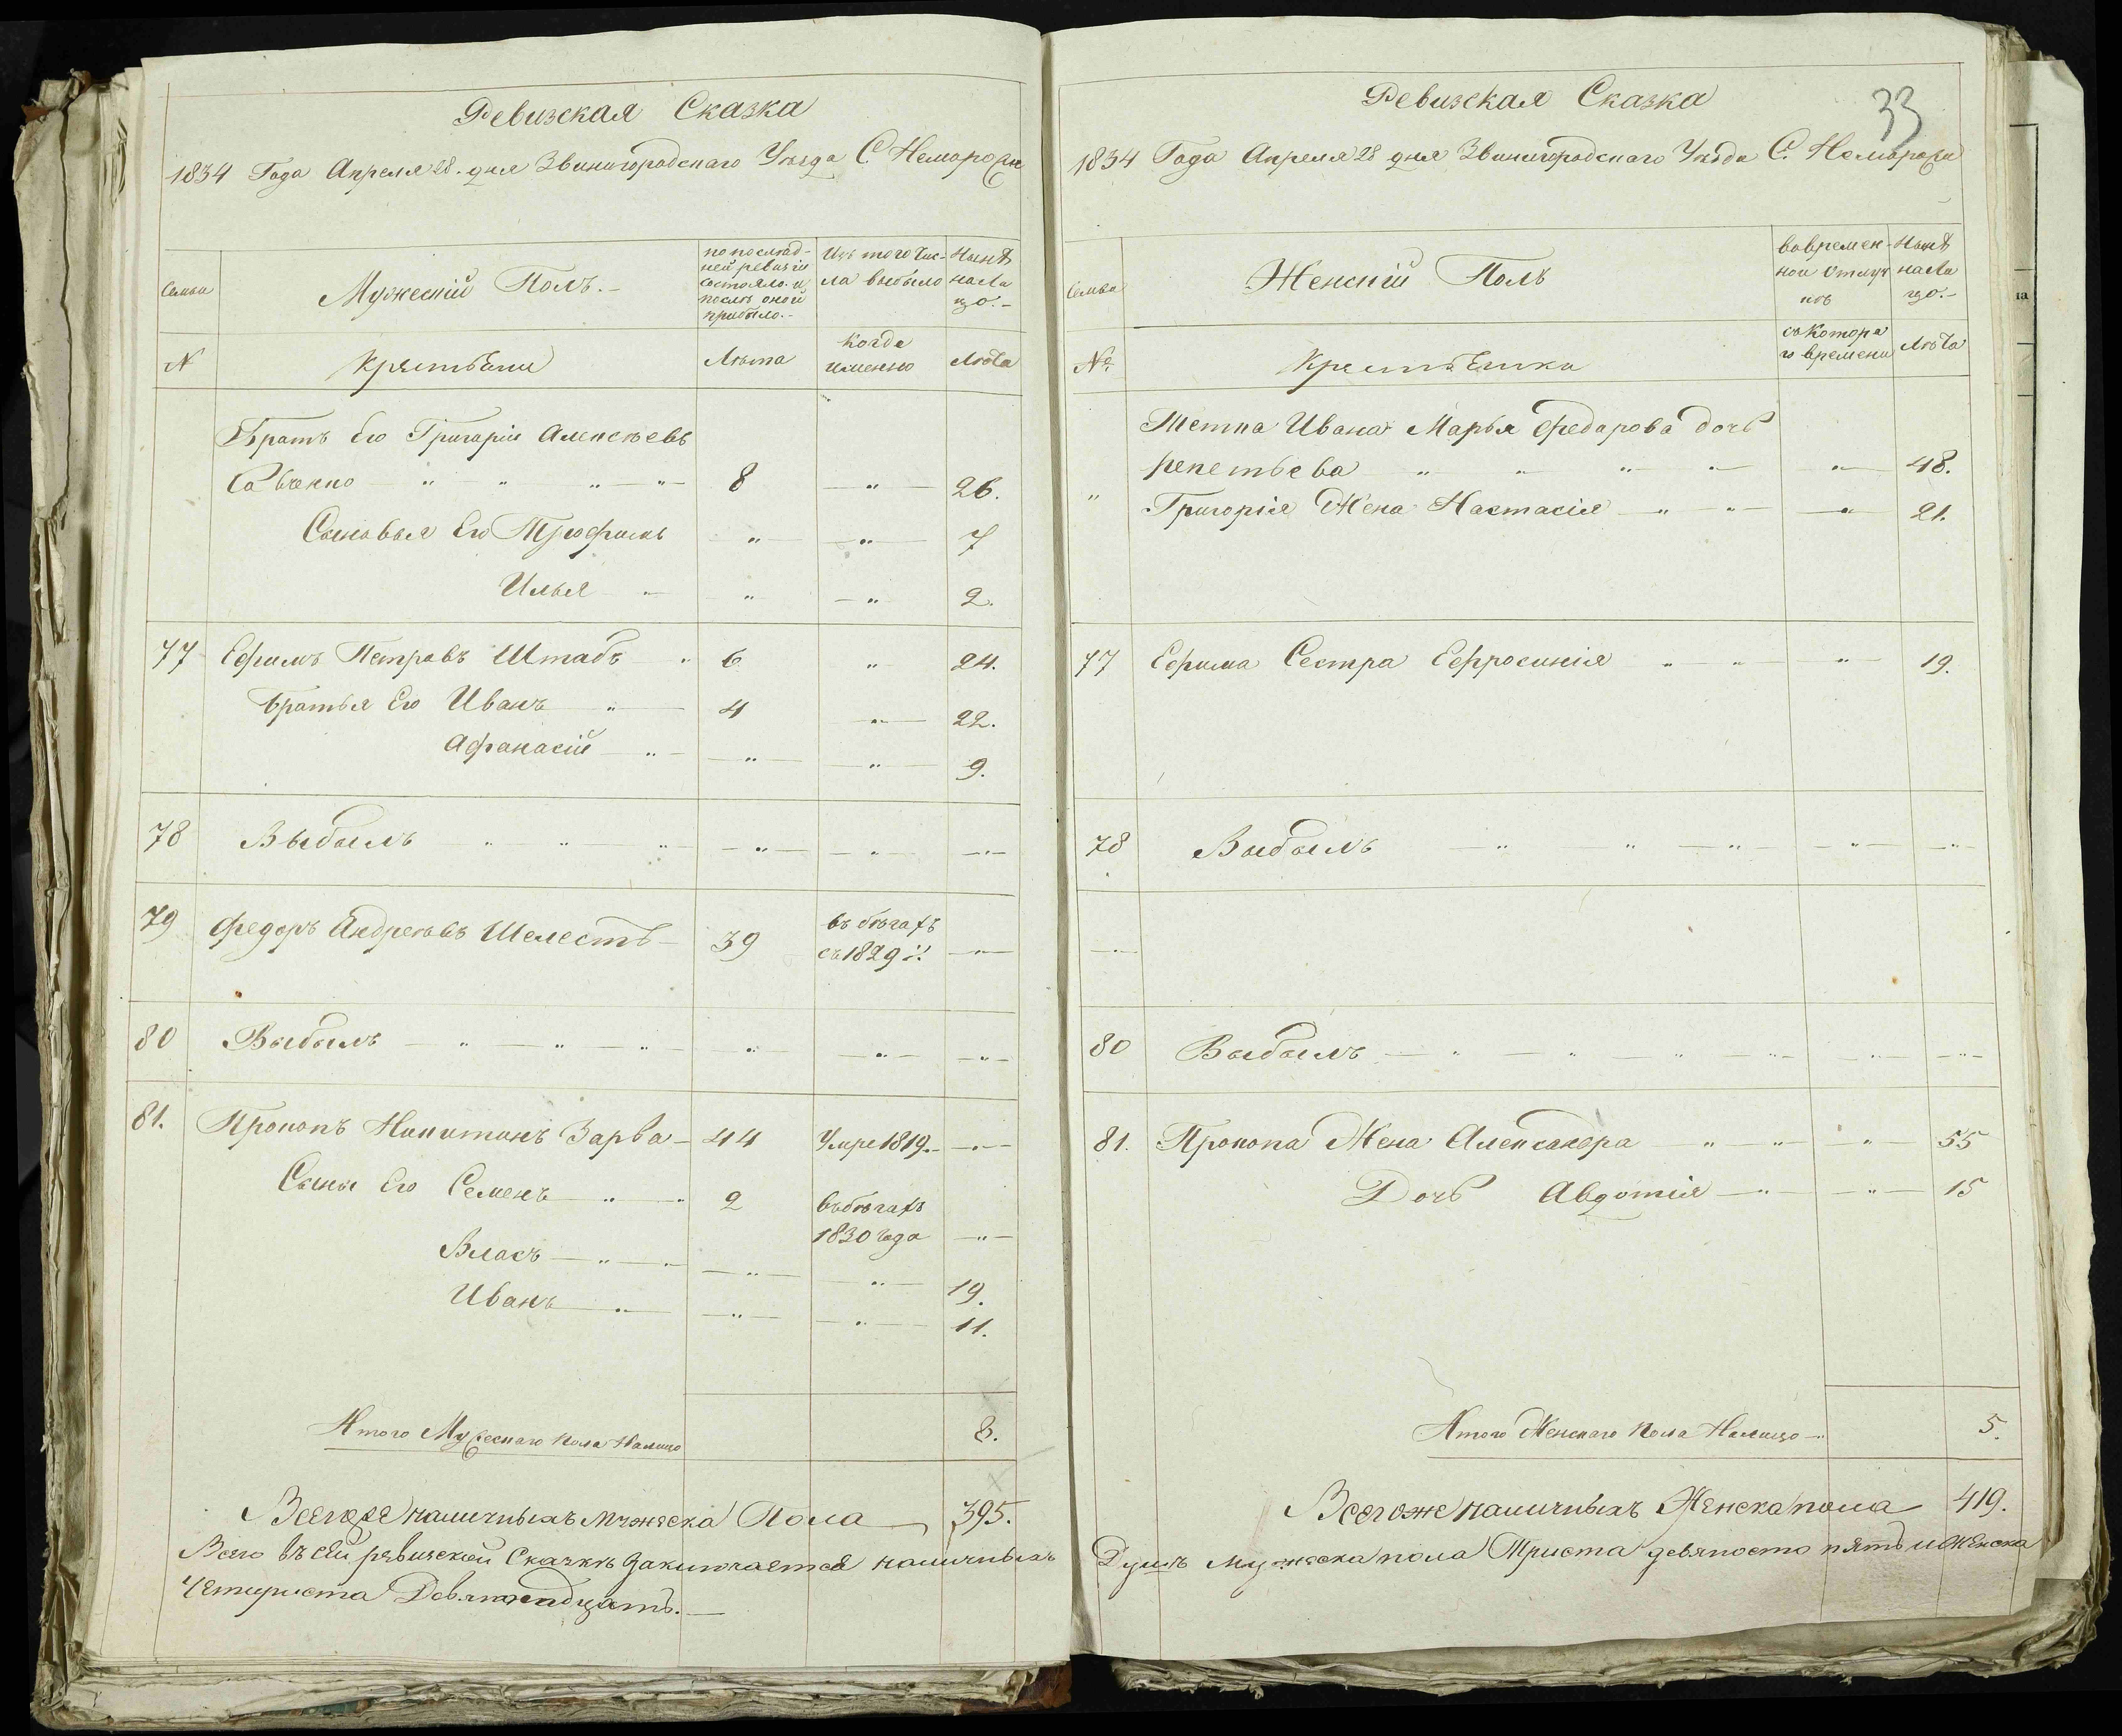 Ревизская Сказка
1834 Года Апреля 28. дня Звинигородскаго Уезда С. Неморожи
Семьи
Мужескій Полъ.
по послѣд-
ней ревизіи
состояло и
послѣ оной
прибыло.
Изъ того чис-
ла выбыло
Нынѣ
нали
цо.
N
крестьяни
Лѣта
Когда
именно
Лѣта
Братъ Его Григорій Алексѣевъ
Савченко " " " " 8 " 26.
Сыновья Его Трофимъ " " 7
Илья " " " 2.
77 Ефимъ Петровъ Штабъ " 6 " 24.
братья Его Иванъ " 4 " 22.
Афанасій " " " 9.
78 Выбылъ " " " " " "
79 Федоръ Андреевъ Шелестъ 39 въ бѣгахъ
съ 1829 г. "
80 Выбылъ " " " " " "
81. Прокопъ Никитинъ Зарва 44 Умре 1819. "
Сыны Его Семенъ " " 2 въ бѣгахъ
1830 года "
Власъ " " " " 19.
Иванъ " " " 11.
Итого Мужескаго пола Налицо 8.
Всегоже наличныхъ мужеска Пола 395.
Всего въ сей ревизской Сказкѣ заключается наличныхъ
Четыриста Девятнадцать.
Ревизская Сказка
33
1834 Года Апреля 28 дня Звинигородскаго Уезда С. Неморожи
Семьи
Женскій Полъ
вовремен-
ной отлуч
кѣ
Нынѣ
нали
цо.
№
Крестьянки
съ котора
го времени
Лѣта
Тетка Ивана Марья Федарова дочь
репетьева " " " " " 48.
" Григорія Жена Настасія " " " 21.
77 Ефима Сестра Ефросинія " " " 19.
78 Выбылъ " " " " "
"
80 Выбылъ " " " " " "
81. Прокопа Жена Александра " " " 55
Дочь Авдотія " " 15
Итого Женскаго Пола Налицо 5.
Всегоже наличныхъ Женска пола 419.
Душъ мужеска пола Триста девяносто пять и Женска